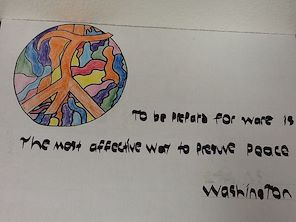 To be prepard for ware is
The most affective way to presuve peace
Washington